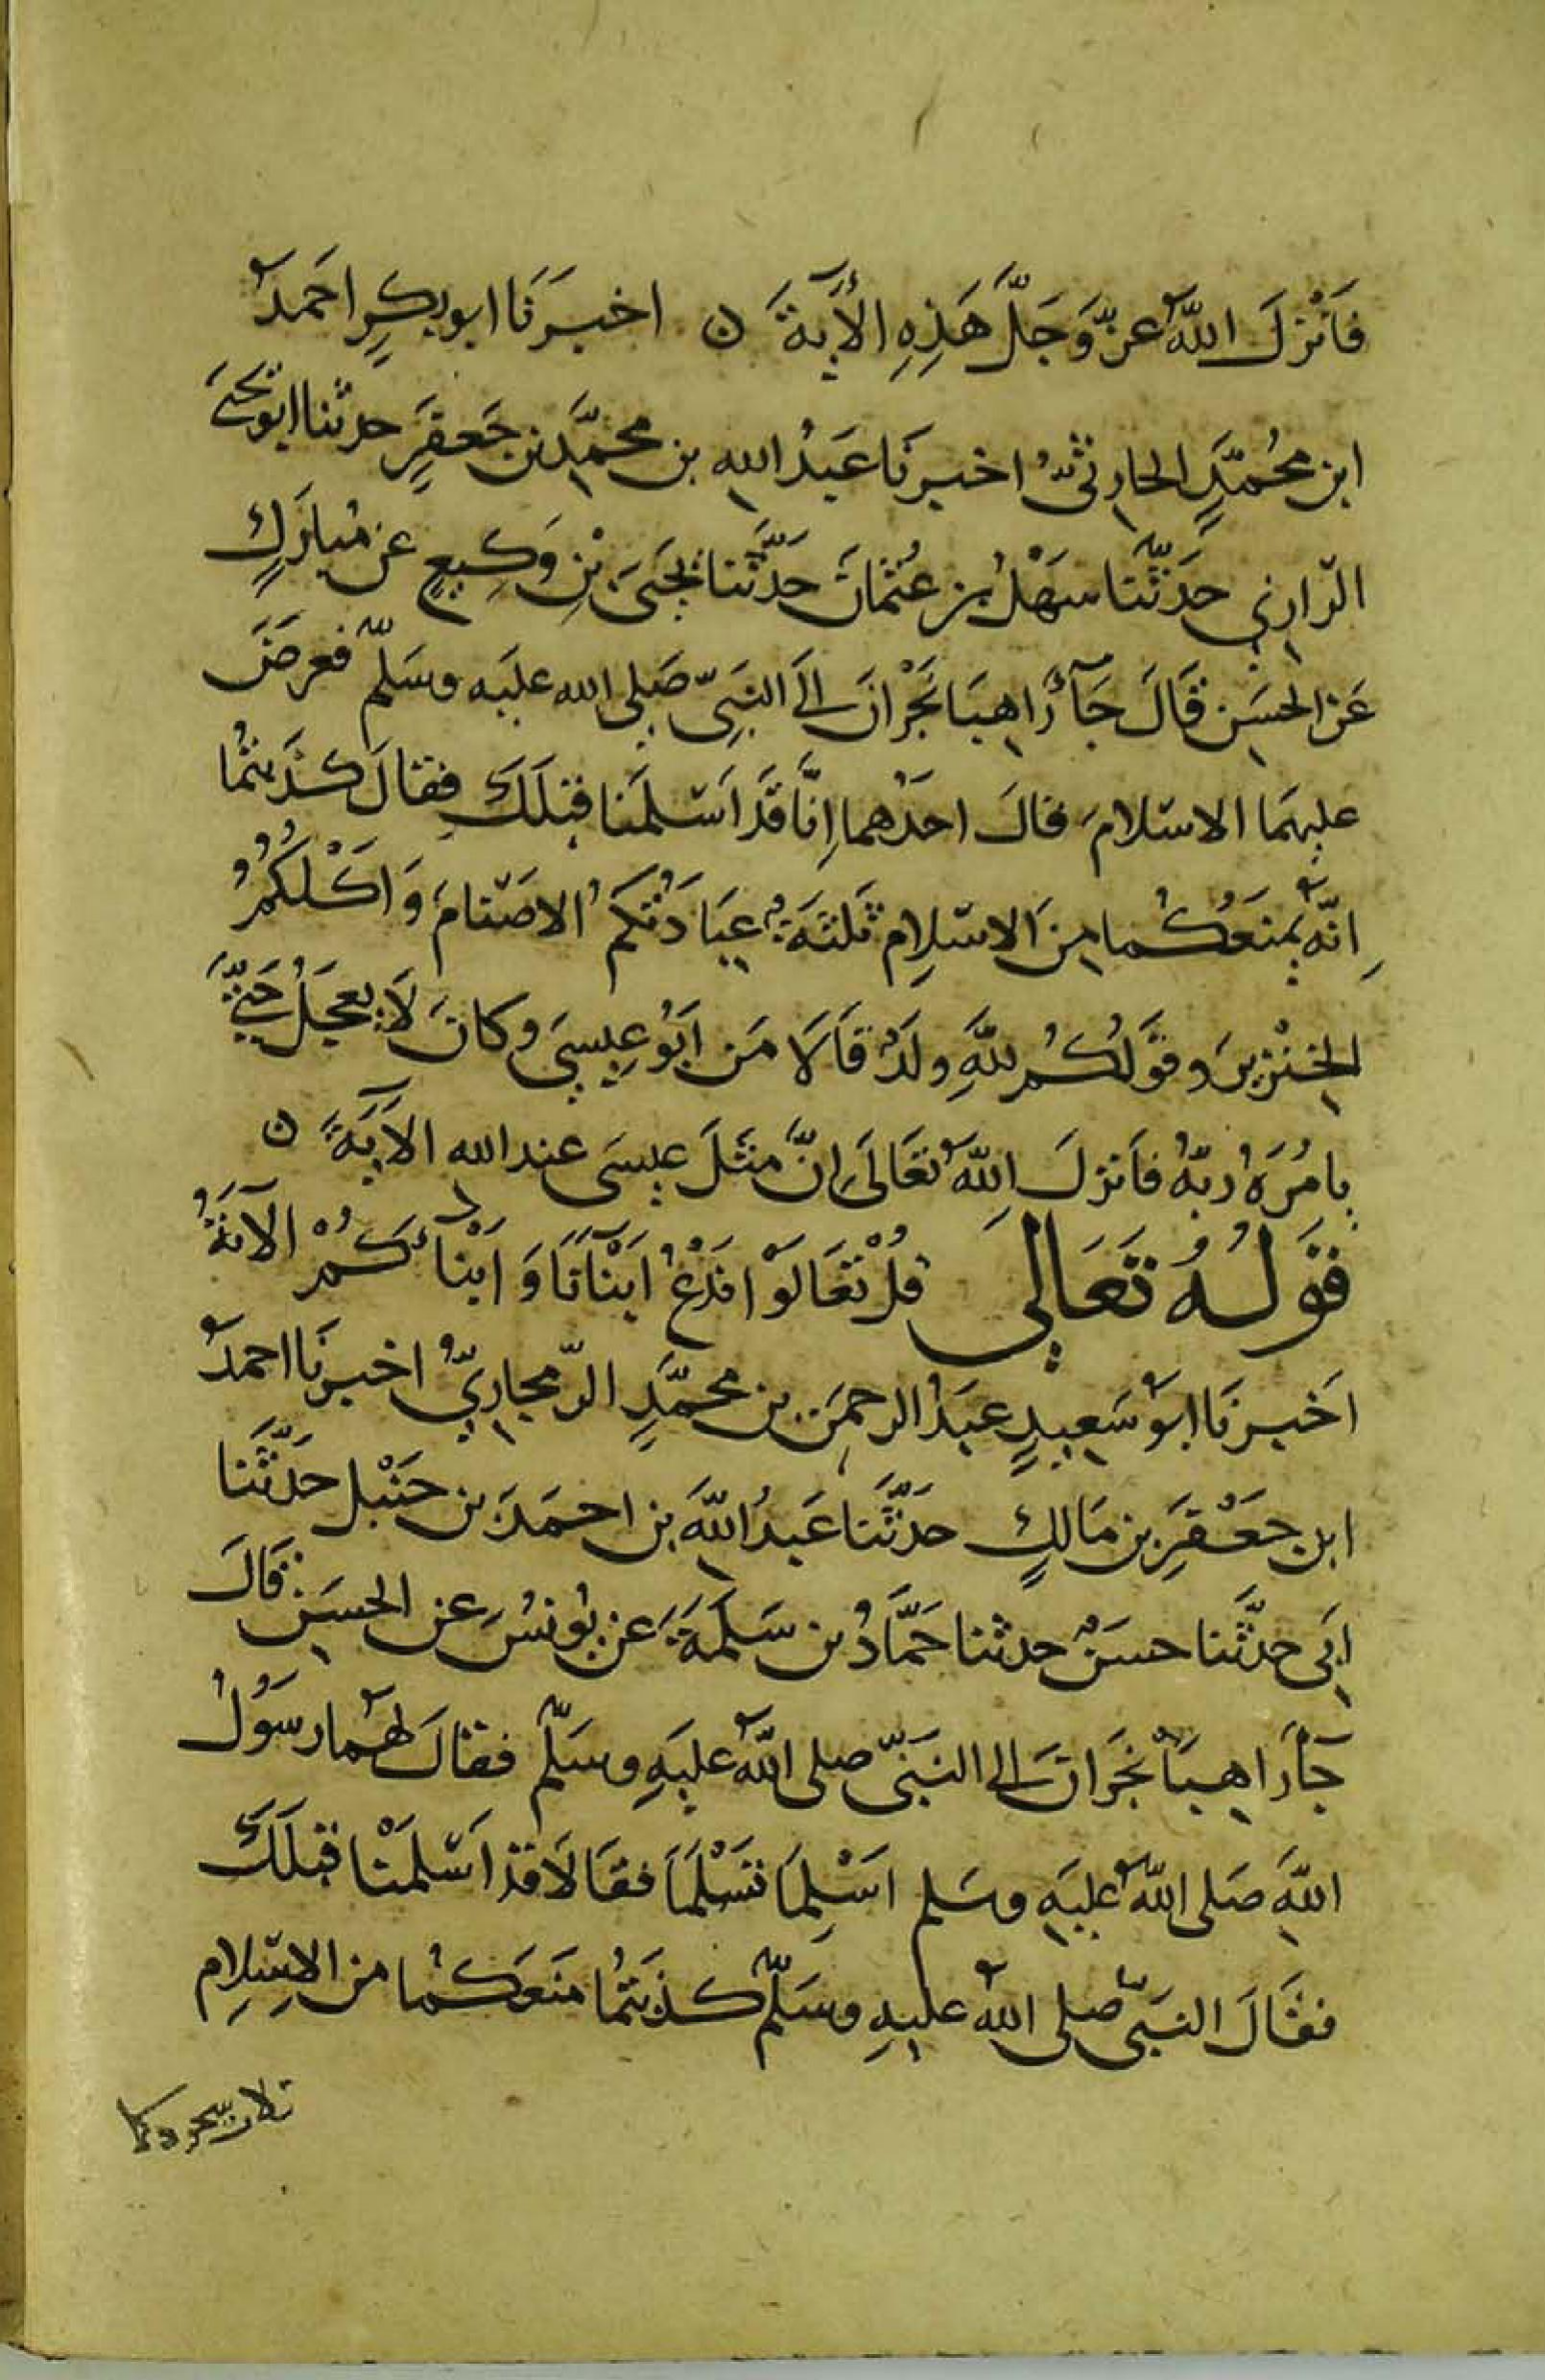 فَأَنْزَلَ اللهُ عزّ وَجَلَّ هَذِهِ الأيَةَ ن اخبرَنَا ابو بكرٍ احَمدُ
ابن محُمّدٍ الحارِثىُّ اخبرنَا عَبدُ اللهِ بن محمّدِ بن جَعفرٍ حدثنا ابو يحَيَى
الرّازِى حَدّثَنا سَهْلُ بن عُثمانَ حَدَّثَنا يَحيَى بْنِ وَكِيعٍ عن مُبارَكٍ
عَن الحسَنِ قَالَ جَآءَ رَاهِبَا نَجْرَانَ اِلَى النَبِىّ صَلى الله عليَه وسَلمّ فعرضَ
عليهمَا الاسْلامَ فقالَ احَدُهما اِنَّا قَد اَسْلَمنا قبلَكَ فقالَ كَذَبتُما
اِنّهُ يَمنَعُكُما مِنَ الاسْلامِ ثَلثَةٌ عِبَادَتُكمُ الاصْنامَ وَاَكْلُكُمُ
الخِنْزيرَ وقَولُكُم للهِ ولَدٌ قَالَا مَن اَبُو عِيسىَ وكانَ لَا يعجَلُ حَتّى
يامُرَهُ ربّهُ فاَنزلَ اللهُ تعَالَى اِنَّ مثَلَ عيسَى عند الله الآيَةَ ن
قَولُهُ تَعَالىَ قُلْ تعَالَوْا نَدْعُ اَبْنآنَا وَاَبْنآكُمْ الآيَةُ
اَخبرنَا ابوُ سَعِيدٍ عبَدُ الرحمَن بن محمّدٍ الرّمجارِىُّ اخبرنَا احمدُ
ابن جَعْفرِ بن مَالكٍ حدَّثَنا عَبدُ اللهِ بن احمَدَ بن حَنْبل حدَّثَنا
اَبى حدثَّنا حسَنٌ حدثنا حَمَّادُ بن سَلمَةَ عن يُونسُ عن الحسَنِ قَالَ
جَآءَ رَاهِبَا نجَرَانَ الى النَبىّ صلى اللهُ عليَهِ وسَلمّ فقالَ لهُما رسُولُ
اللهِ صَلى اللهُ عليَهِ وسَلم اَسْلِمَا تَسْلَمَا فقَالَا قد اَسْلَمْنا قبلَكَ
فقَالَ النَبىّ صلى اللهُ عليهِ وسَلمّ كذَبتُما مَنعَكُما من الاِسْلاِم
ثلاث